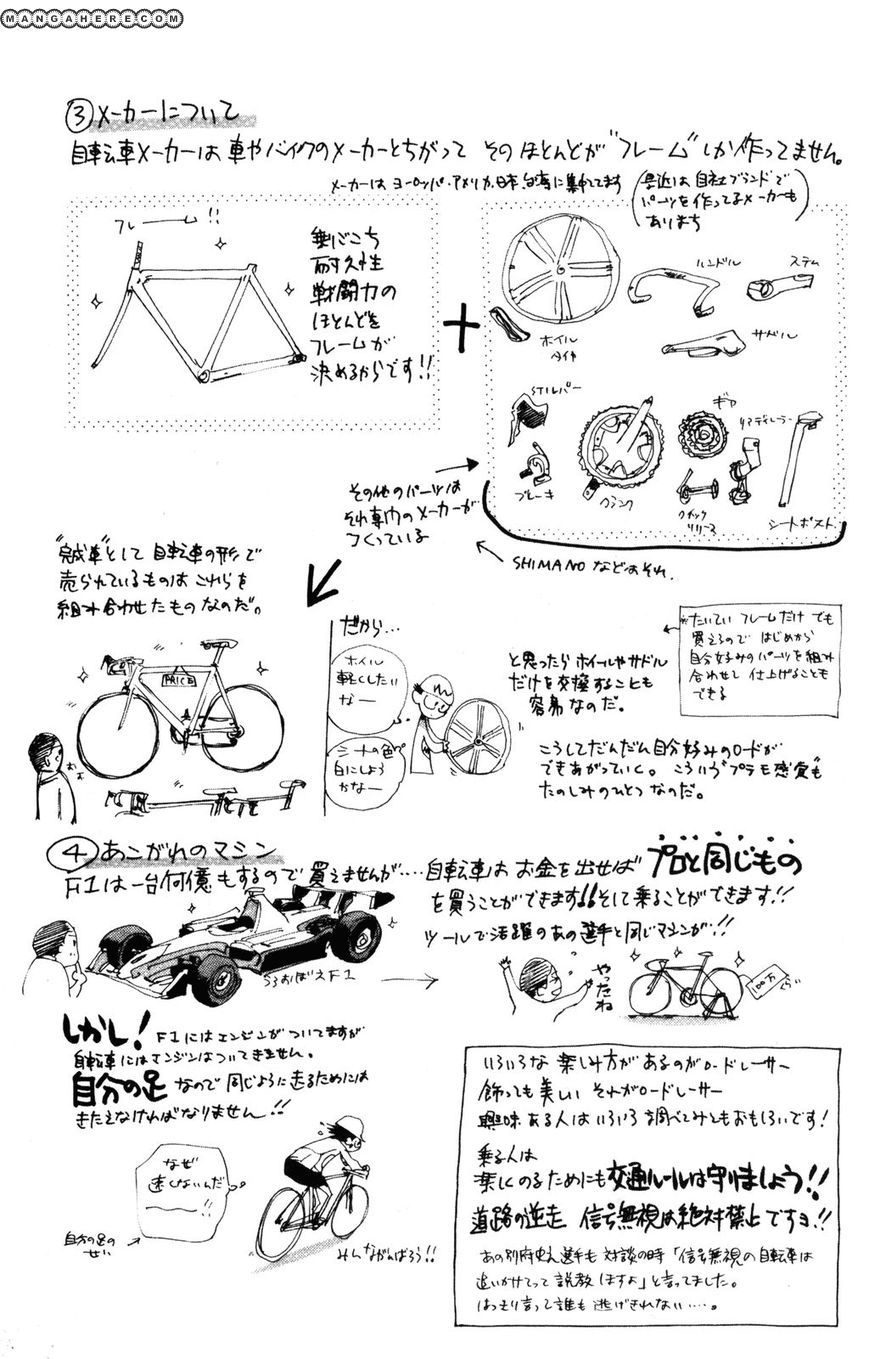 MANGAHERE.COM
③メーカーについて
自転車メーカーは車やバイクのメーカーとちがって そのほとんどが"フレーム"しか作ってません。
メーカーは ヨーロッパ・アメリカ、日本、台湾に集中してます
(最近は自社ブランドで
パーツを作ってるメーカーも
ありまち)
フレーーム!!
乗りごこち
耐久性
戦闘力の
ほとんどを
フレームが
決めるからです!!
+
ホイル
タイヤ
ハンドル
ステム
サドル
STIレバー
ブレーキ
クランク
ギア
リアディレーラー
クイック
リリース
シートポスト
その他のパーツは
それ専門のメーカーが
つくっている
SHIMANO などはそれ.
"完成車"として 自転車の形で
売られているものは これらを
組み合わせたものなのだ。
PRICE
だから…
ホイル
軽くしたい
なー
シートの色
白にしよう
かなー
と思ったら ホイールやサドル
だけを交換することも
容易なのだ。
※たいてい フレームだけ でも
買えるので はじめから
自分好みのパーツを組み
合わせて 仕上げることも
できる
こうしてだんだん自分好みのロードが
できあがっていく。こういう"プラモ感覚"も
たのしみのひとつなのだ。
④あこがれのマシン
F1は一台何億もするので買えませんが‥‥自転車は お金を出せば プロと同じもの
を買うことができます!!そして乗ることができます!!
ツールで活躍のあの選手と同じマシンが!!
うろおぼえF1
やったね
100万
ぐらい
しかし! F1にはエンジンがついてますが
自転車にはエンジンはついてきません。
自分の足 なので 同じように走るためには
きたえなければなりません!!
なぜ
速くないんだ
ーー!!
自分の足の
せい
みんながんばろう!!
いろいろな 楽しみ方が あるのがロードレーサー
飾っても美しい それがロードレーサー
興味ある人は いろいろ調べてみてもおもしろいです!
乗る人は
楽しくのるためにも交通ルールは守りましょう!!
道路の逆走 信号無視は絶対禁止ですョ!!
あの別府史之選手も 対談の時「信号無視の自転車は
追いかけてって 説教しますよ」と言ってました。
はっきり言って誰も 逃げきれない‥‥。